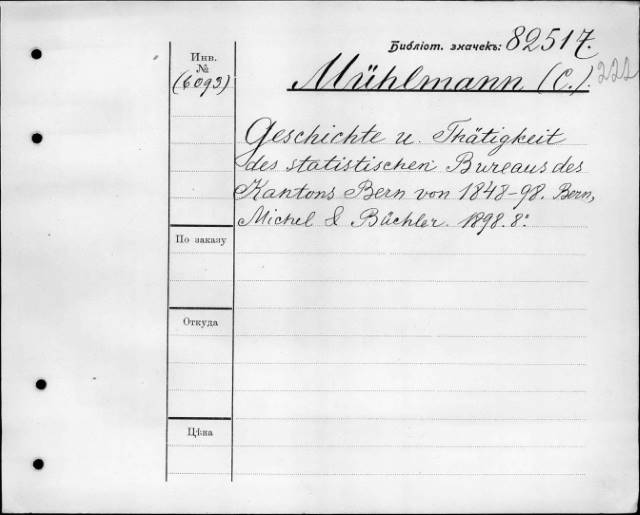 Библіот. значекъ: 82517.
Инв.
№
(6093)
Mühlmann (C.). 222
Geschichte u. Thätigkeit
des statistischen Bureaus des
Kantons Bern von 1848-98. Bern,
Michel & Büchler. 1898. 8°.
По заказу
Откуда
Цѣна